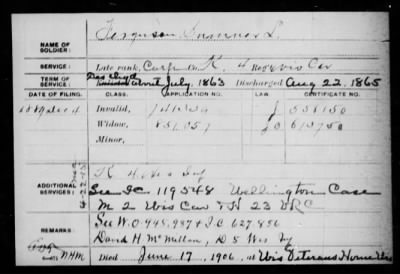 NAME OF SOLDIER: Ferguson, Sumner L.
SERVICE: Late rank, Corp Co. K, 4 Reg't Wis Cav
TERM OF SERVICE: Enlisted July, 1863 Discharged Aug 22, 1865
DATE OF FILING. CLASS. APPLICATION NO. CERTIFICATE NO.
Invalid, 558150
Widow, 831,057 613750
Minor,
ADDITIONAL SERVICES: K 4 Wis Inf
See IC 119548 Wellington Case
M 2 Wis Cav & H 23 VRC
REMARKS: See W.O. 948,987 & I.C. 627,856
David H McMillan, D 5 Wis Inf
NHM Died June 17, 1906, at Wis Veterans Home Wis